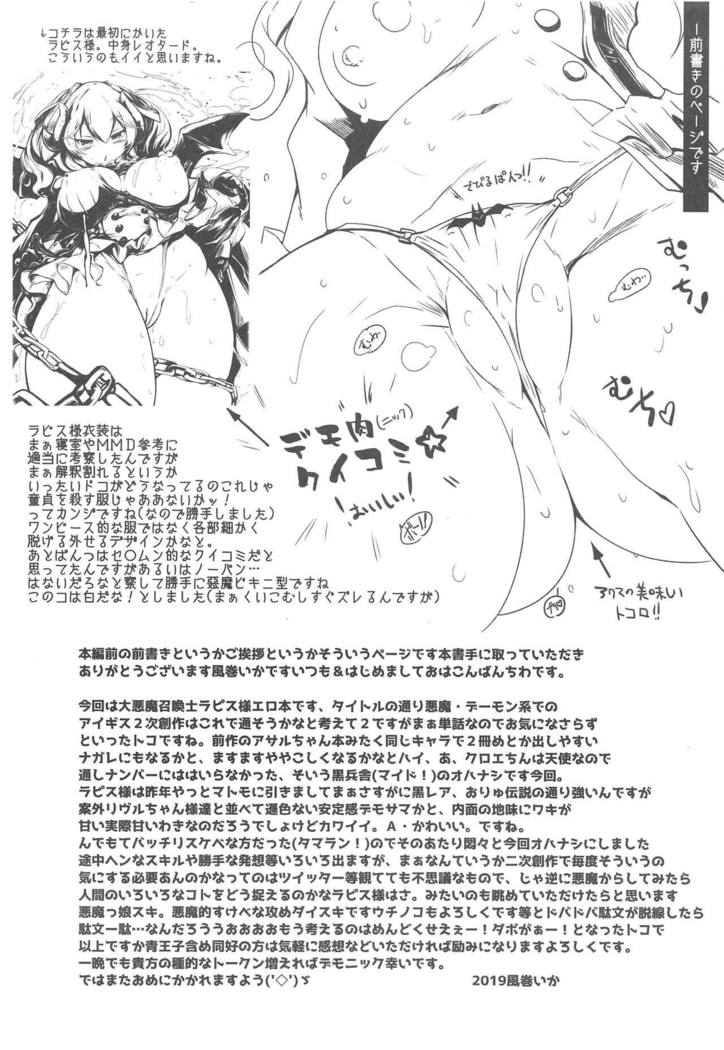 －前書きのページです
↓コチラは最初にかいた
ラピス様。中身レオタード。
こういうのもイイと思いますね。
さびるぱんつ!!
むっち♡
むわ…
むち♡
むわ
デモ肉(ニック)
クイコミ☆
おいしい!
ラピス様衣装は
まぁ寝室やMMD参考に
適当に考察したんですが
まぁ解釈割れるというか
いったいドコがどうなってるのこれじゃ
童貞を殺す服じゃああないかッ!
ってカンジですね(なので勝手しました)
ワンピース的な服ではなく各部細かく
脱げる外せるデザインかなと。
あとぱんつはセ〇ムン的なクイコミだと
思ってたんですがあるいはノーパン…
はないだろなと察して勝手に惡魔ビキニ型ですね
このコは白だな!としました(まぁくいこむしすぐズレるんですが)
アクマの美味しい
トコロ!!
本編前の前書きというかご挨拶というかそういうページです本書手に取っていただき
ありがとうございます風巻いかですいつも&はじめましておはこんばんちわです。
今回は大悪魔召喚士ラピス様エロ本です、タイトルの通り悪魔・デーモン系での
アイギス２次創作はこれで通そうかなと考えて２ですがまぁ単話なのでお気になさらず
といったトコですね。前作のアサルちゃん本みたく同じキャラで２冊めとか出しやすい
ナガレにもなるかと、ますますややこしくなるかなとハイ、あ、クロエちんは天使なので
通しナンバーにははいらなかった、そいう黒兵舎(マイド!)のオハナシです今回。
ラピス様は昨年やっとマトモに引きましてまぁさすがに黒レア、おりゅ伝説の通り強いんですが
案外リヴルちゃん様達と並べて遜色ない安定感デモサマかと、内面の地味にワキが
甘い実際甘いわきなのだろうでしょけどカワイイ。A・かわいい。ですね。
んでもてバッチリスケベな方だった(タマラン!)のでそのあたり悶々と今回オハナシにしました
途中ヘンなスキルや勝手な発想等いろいろ出ますが、まぁなんていうか二次創作で毎度そういうの
気にする必要あんのかなってのはツイッター等観てても不思議なもので、じゃ逆に悪魔からしてみたら
人間のいろいろなコトをどう捉えるのかなラピス様はさ。みたいのも眺めていただけたらと思います
悪魔っ娘スキ。悪魔的すけべな攻めダイスキですウチノコもよろしくです等とドバドバ駄文が脱線したら
駄文一駄…なんだろううおおおおもう考えるのはめんどくせえぇー!ダボがぁー!となったトコで
以上ですか青王子含め同好の方は気軽に感想などいただければ励みになりますよろしくです。
一晩でも貴方の種的なトークン増えればデモニック幸いです。
ではまたおめにかかれますよう('◇')ゞ
2019風巻いか